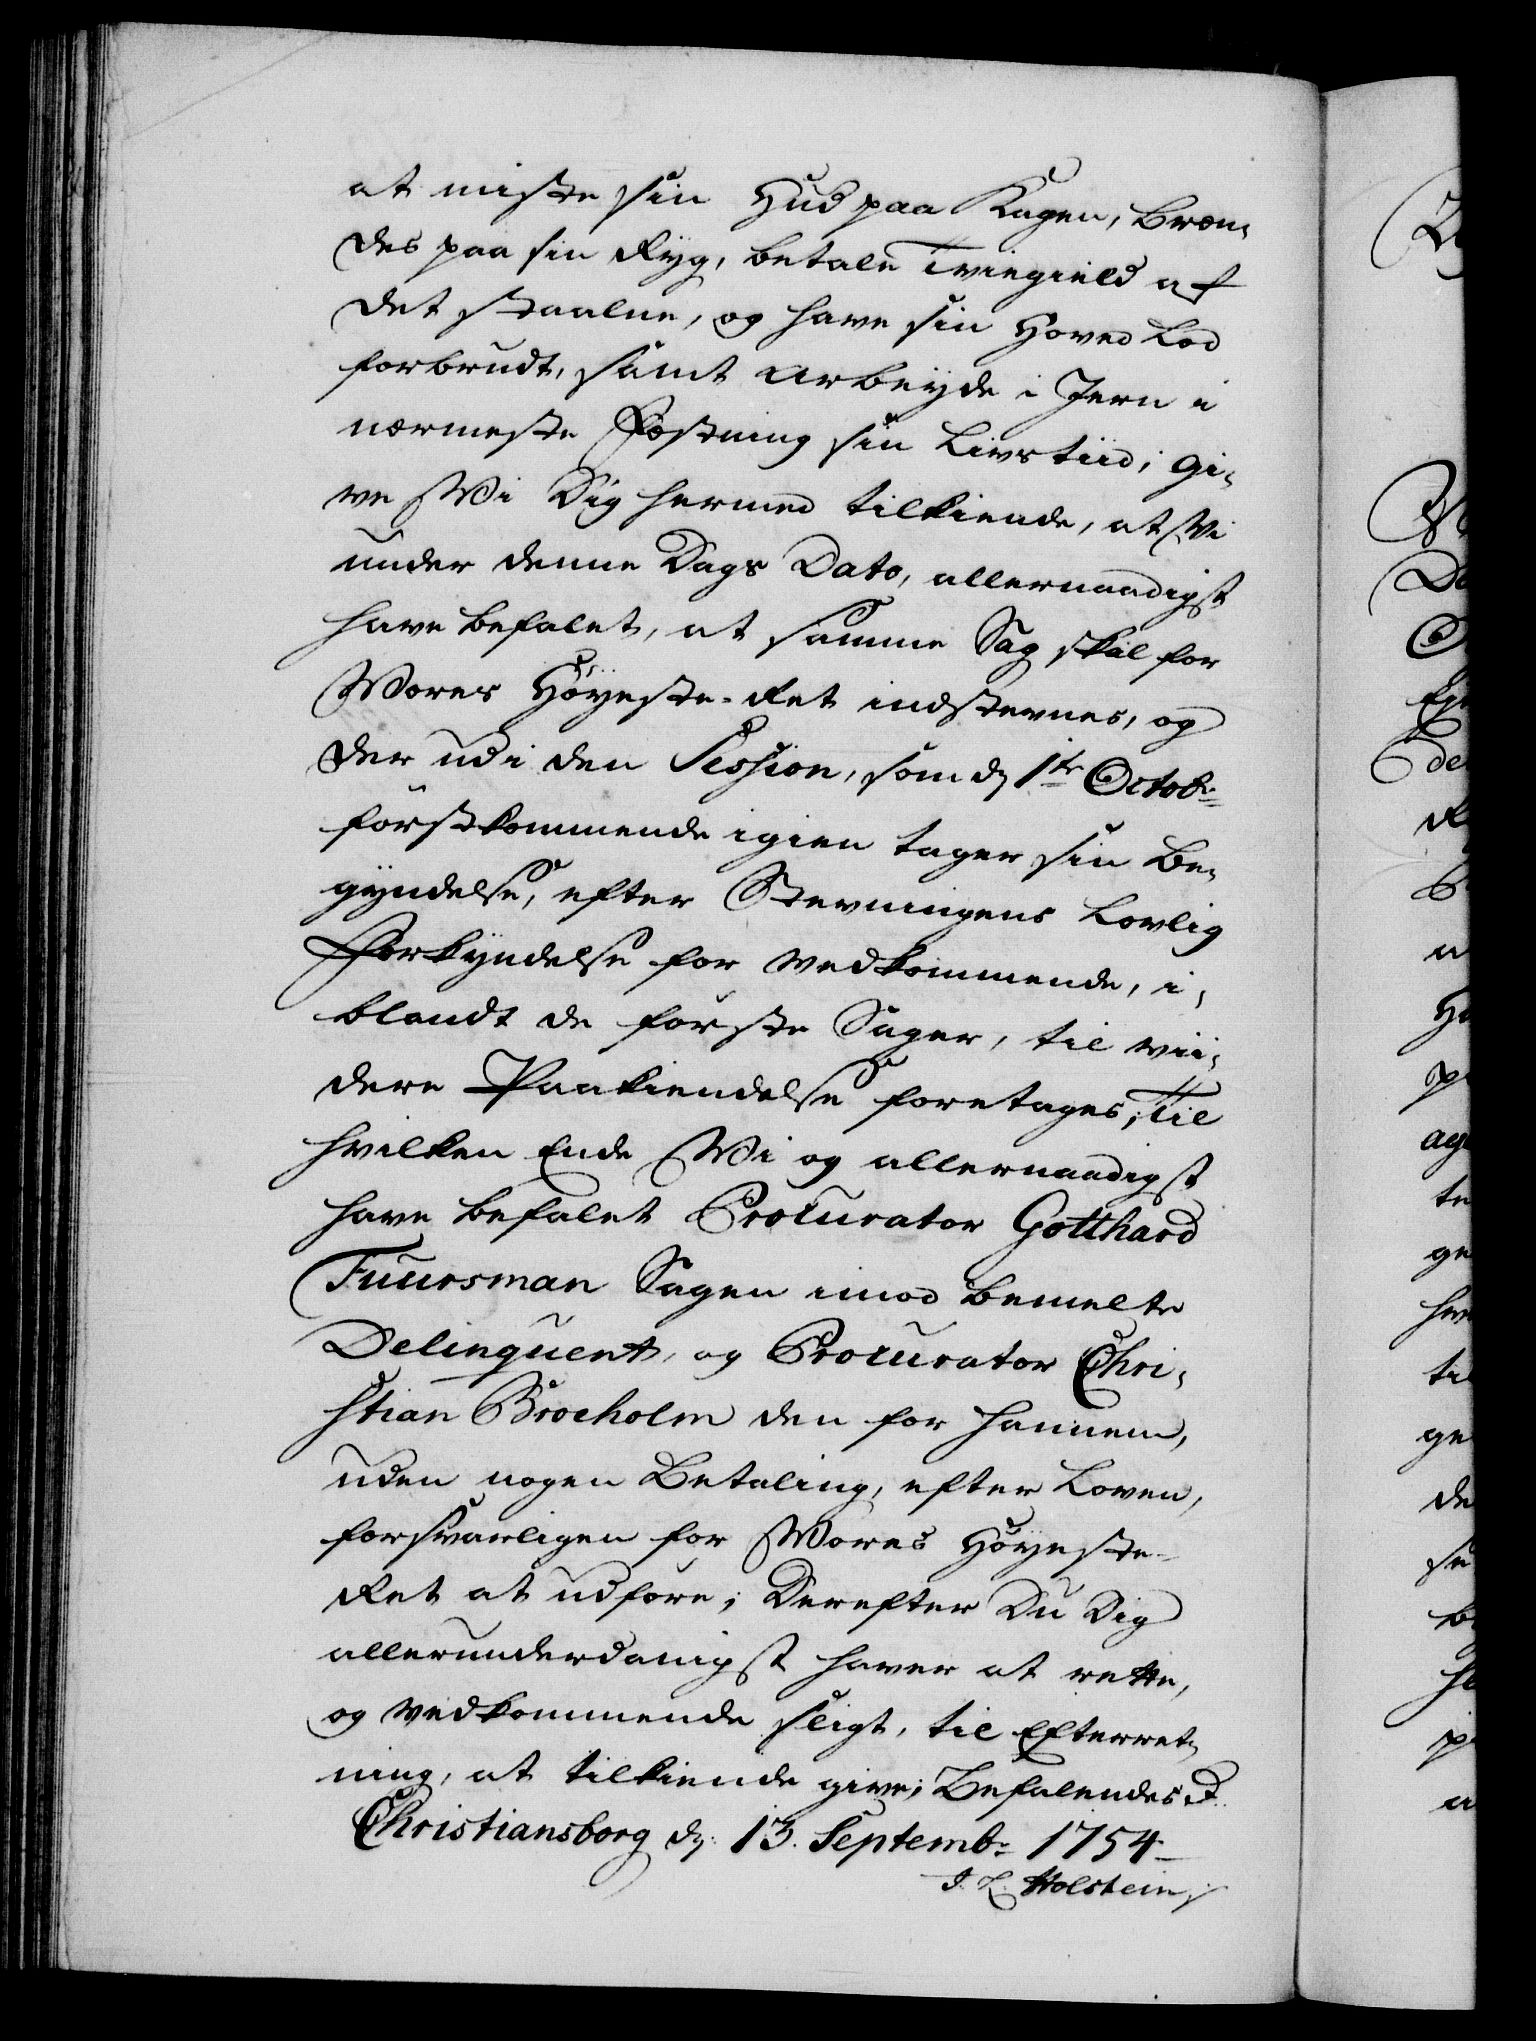 at miste sin Hud paa Kagen, bræn-
des paa sin Ryg, betale Tviegield af
det staalne, og have sin Hoved Lod
forbrudt, samt arbeyde i Jern i
nærmeste Fæstning sin Livs tiid; gi-
ve Wi Dig hermed tilkiende, at Vi
under denne Dags Dato, allernaadigst
have befalet, at samme Sag skal for
Wores Höyeste-Ret indstevnes, og
der udi den Session, som dj 1te Octobr
förstkommende igien tager sin Be-
gyndelse, efter Stevningens Lovlig
Forkyndelse for Vedkommende, i-
blandt de förste Sager, til vii-
dere Paakiendelse foretages; Til
hvilken Ende Wi og allernaadigst
have befalet Procurator Gotthard
Fuursman Sagen imod bemelte
Delinquent, og Procurator Chri-
stian Broeholm den for hannem,
uden nogen Betaling, efter Loven,
forsvarligen for Wores Höyeste-
Ret at udföre; Derefter Du Dig
allerunderdanigst haver at rette,
og Vedkommende sligt, til Efterret-
ning, at tilkiende give; Befalendes D.
Christiansborg dj: 13. Septembr 1754
J. L. Holstein